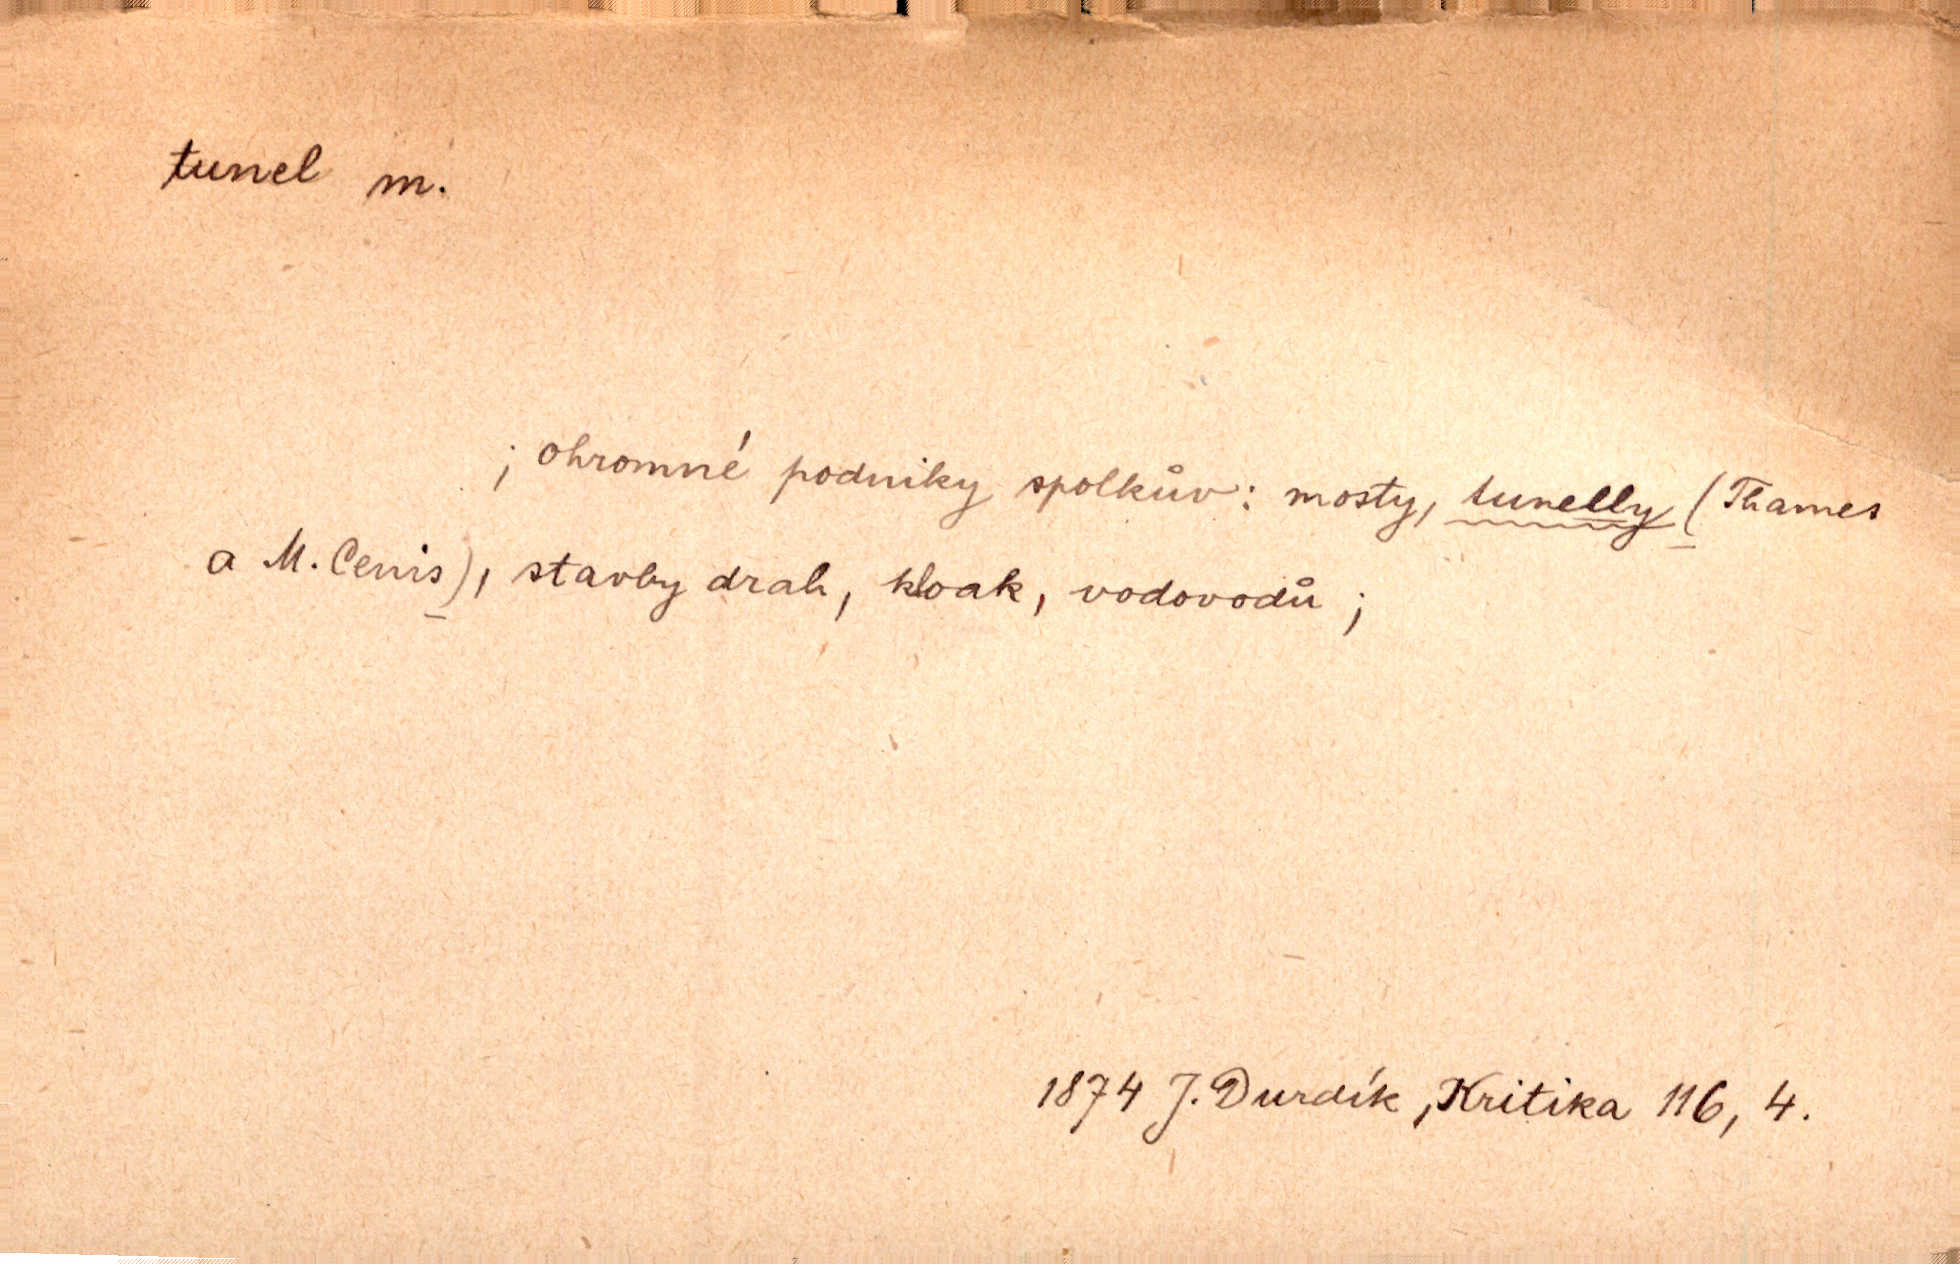 tunel m.
; ohromné podniky spolkův: mosty, tunelly (Thames
a M. Cenis), stavby drah, kloak, vodovodů ;
1874 J. Durdík, Kritika 116, 4.